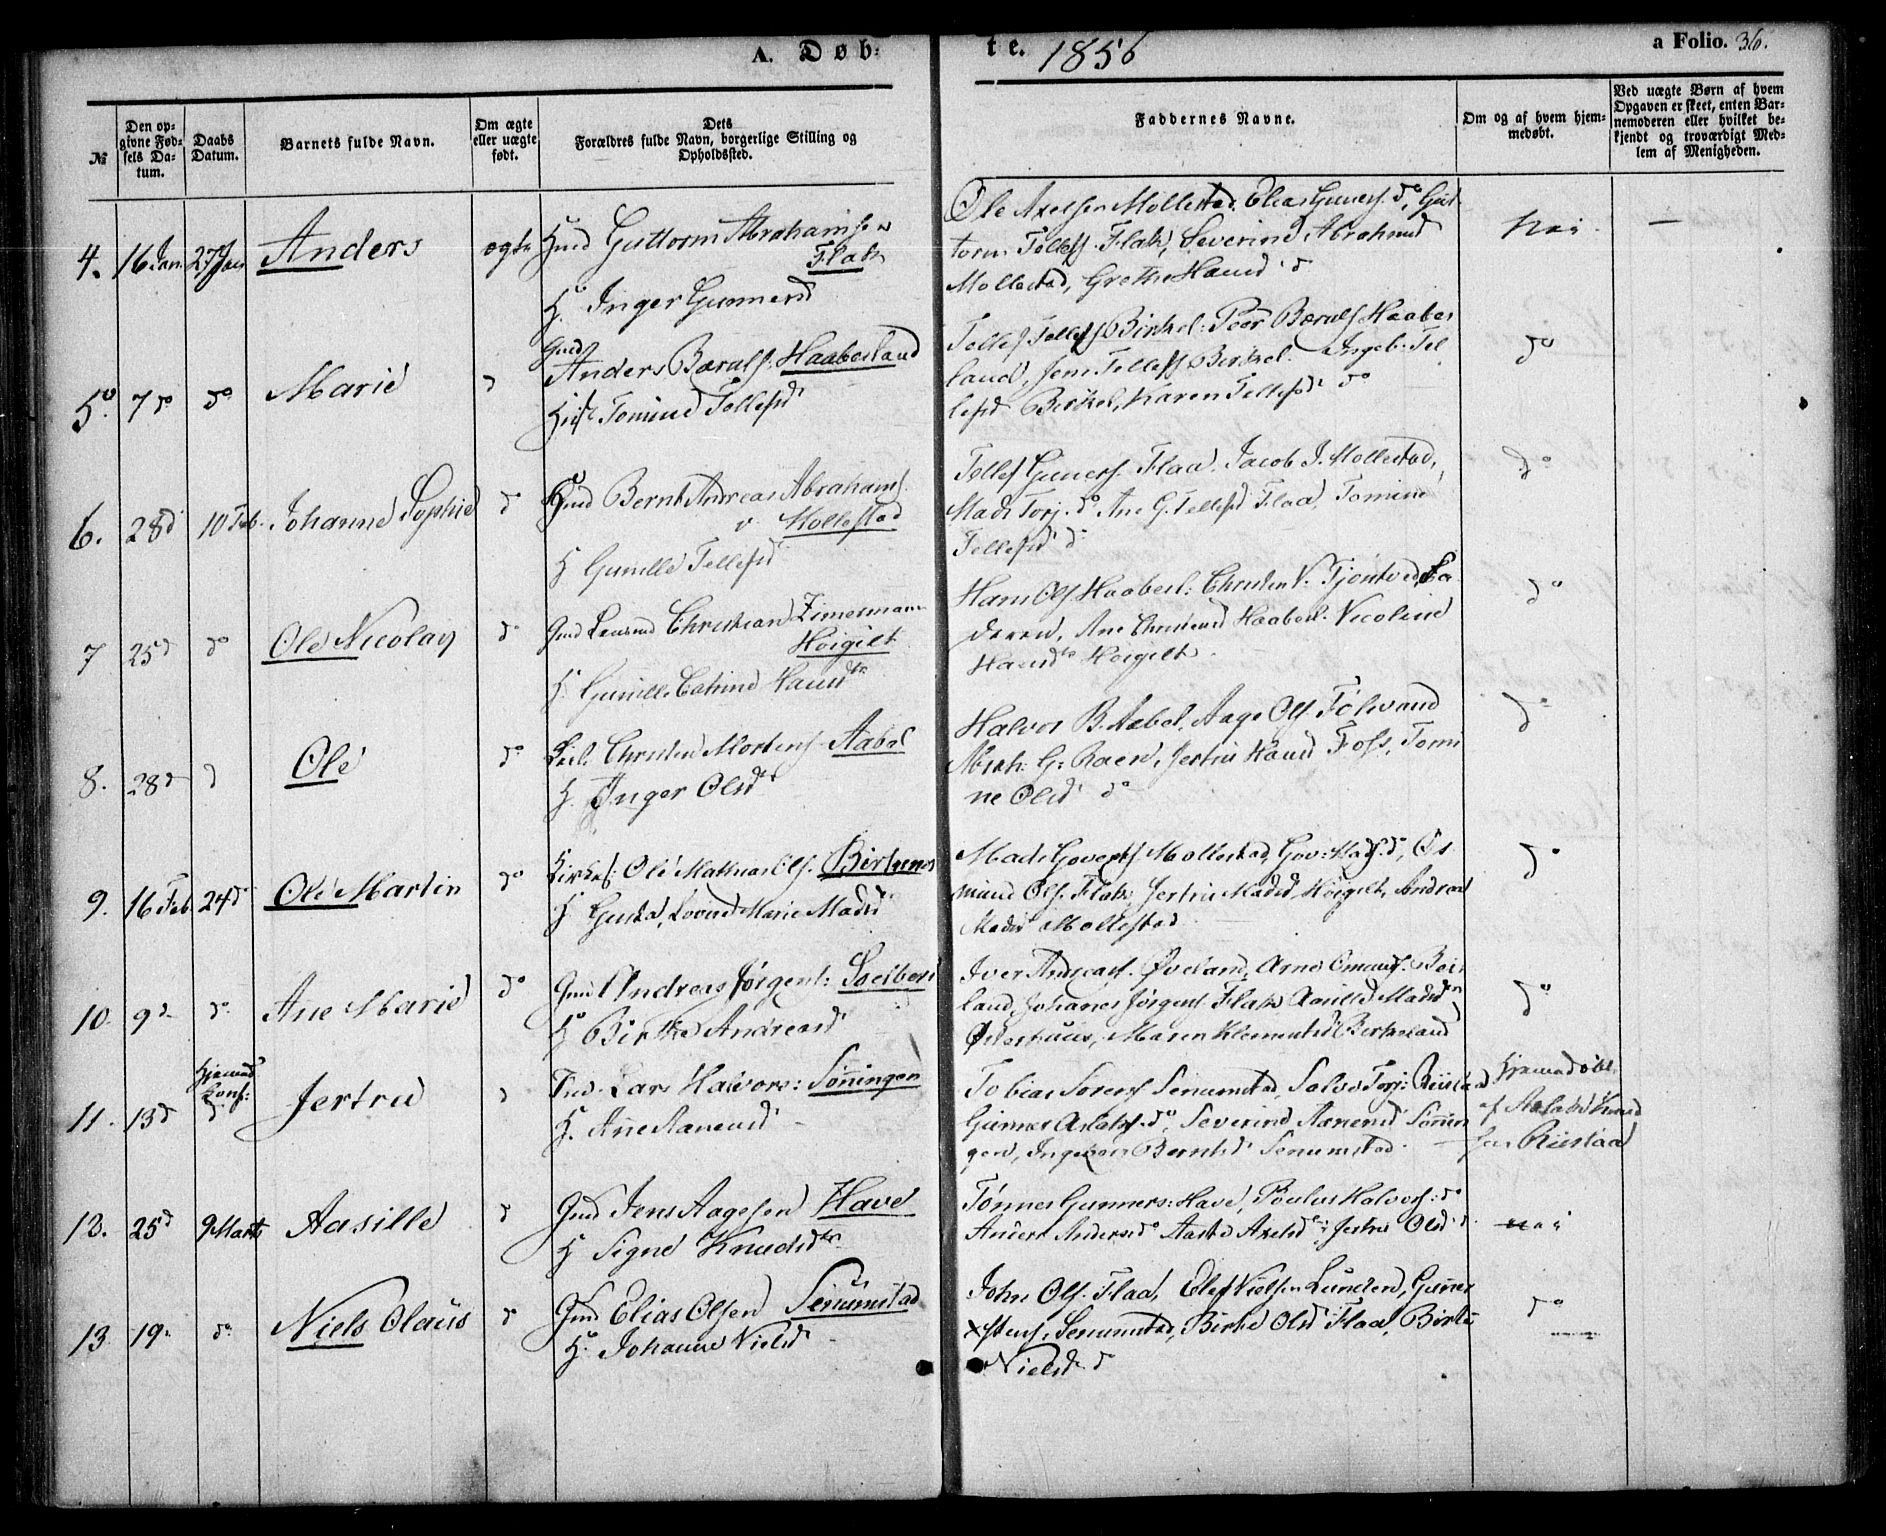 A. Døb-
te. 1856
a Folio. 36.
№
Den op-
givne Fød-
sels Da-
tum.
Daabs
Datum.
Barnets fulde Navn.
Om ægte
eller uægte
født.
Dets
Forældres fulde Navn, borgerlige Stilling og
Opholdssted.
Faddernes Navne.
Om og af hvem hjem-
medøbt.
Ved uægte Børn af hvem
Opgaven er skeet, enten Bar-
nemoderen eller hvilket be-
kjendt og troværdigt Med-
lem af Menigheden.
4. 16 Jan 27 Jan Anders ægte Gmd Guttorm Abrahamsen
Flak
H. Inger Gunnersd
Ole Axelsen Mollestad, Elias Guners. do, Gut
torm Tellefs. Flak, Severine Abrahmsd
Mollestad, Grethe Hansd d
Nei
5. 7 do do Marie d Gmd
Anders Bærulfs. Haabesland
Hust Tomine Tellefsd
Tellef Tellefs Birkel: Peer Bærulfs Haabes
land, Jens Tellefs Birkel. Ingeb. Tel
lefsd Birkel, Karen Tellefsd do
do
6. 28 d 10 Feb. Johanne Sophie d Gmd Bernt Andreas Abrahams.
Mollestad
H Gunille Tellefsd
Tellef Guners. Flaa. Jacob J. Mollestad,
Mads Torj. do Ane G. Tellefsd Flaa, Tomine
Tellefsd d
do
7 25 d do Ole Nicolay do Gmd Christian Zimermann
Høigilt
H. Gunille Catrine Hansdtr
Hans Ols Haabesl: Christen N. Tjøntved,
Ane Haabesl. Nicoline
Hansdtr Høigilt.
do
8. 28 d d Ole do Christen Mortens. Aabel
H. Inger Olsd
Halvor B. Aabel, Aage Ols.
Abrah: G: Raen, Jertru Hansd Foss, Tomi
ne Olsd do
do
9. 16 Feb 24 d Ole Martin do Kirkes: Ole Mathias Ols. Birkenes
H Gusta, Lovise Marie Madsd
Mads Goverts. Mollestad, Gov: Mads. do, Os
mund Ols. Flak, Jertru Madsd Høigilt, Andrea
Madsd Mollestad
do
10. 9 d do Ane Marie do Gmd Andreas Jørgens: Soelberg
H Birthe Andreasd
Iver Andreass. Øveland, Arne Omunds. Bei
land, Johanes Jørgens Flak Aasille Madsd
Østerhuus, Maren Klementsd Birkeland
do
11. 13 d Hjemmed
Conf:
d. Jertru d Ind. Lars Halvors: Sønningen
H. Ane Aanensd
Tobias Sørens Senumstad, Salve Torj: Riisla
Gunner Aslaks. do, Severine Aanensd Sønnin
gen, Ingebor Berntsd Senumstad
Hjemmedøbt
af Aslak Knud
sen Riislaa
12. 25 d 9 Marts Aasille d Gmd Jens Aagesen Have
H Signe Knudsdtr
Tønnes Gunners: Have, Poulus Halvors: do
Anders Andersd do Aaste Axelsd Jertru Olsd d.
Nei
13 19. do Niels Olaus d Gmd Elias Olsen Senumstad
H. Johanne Nielsd
John Ols. Flaa, Elef Nielsen Lunden, Gunner
Senumstad, Birthe Olsd Flaa, Birthe
Nielsd d
do